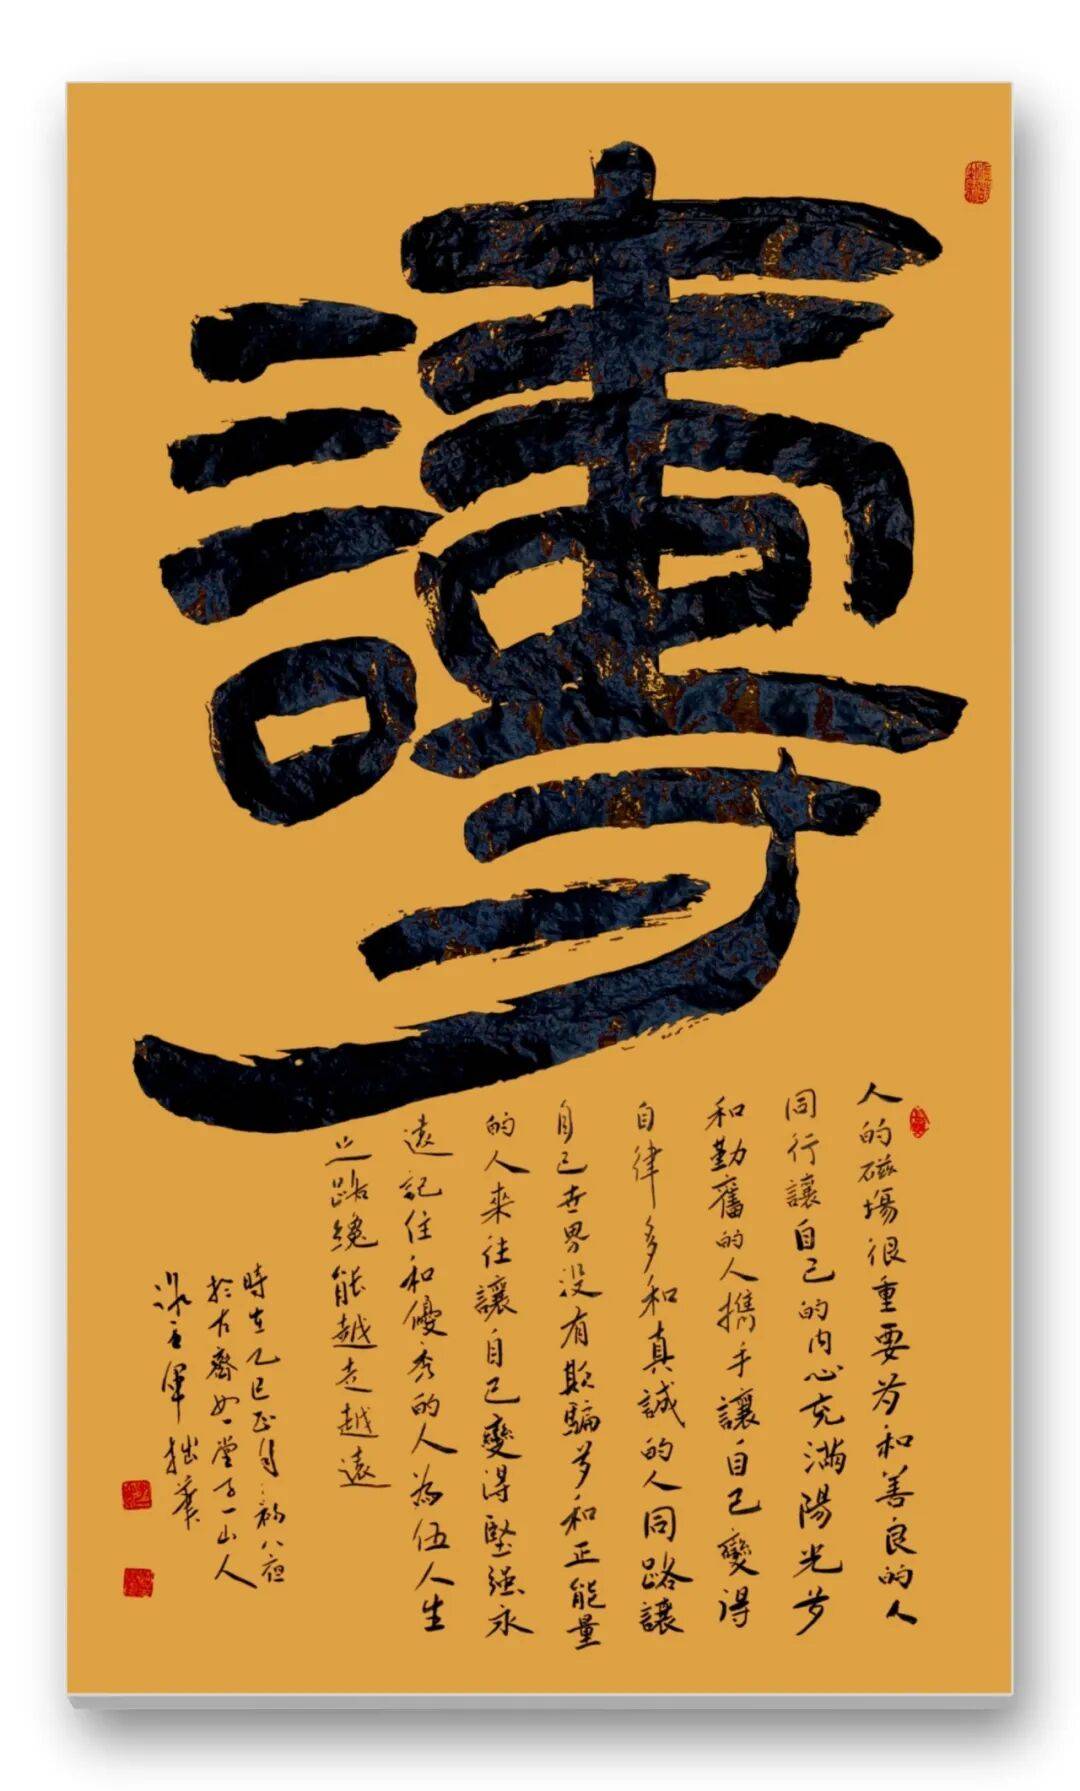 人的磁場很重要多和善良的人
同行讓自己的内心充滿陽光多
和勤奮的人携手讓自己變得
自律多和真誠的人同路讓
自己世界没有欺騙多和正能量
的人来往讓自己變得堅强永
遠記住和優秀的人為伍人生
之路纔能越走越遠
時在乙巳正月初八夜
於古齋如一堂子一山人
軍拙筆